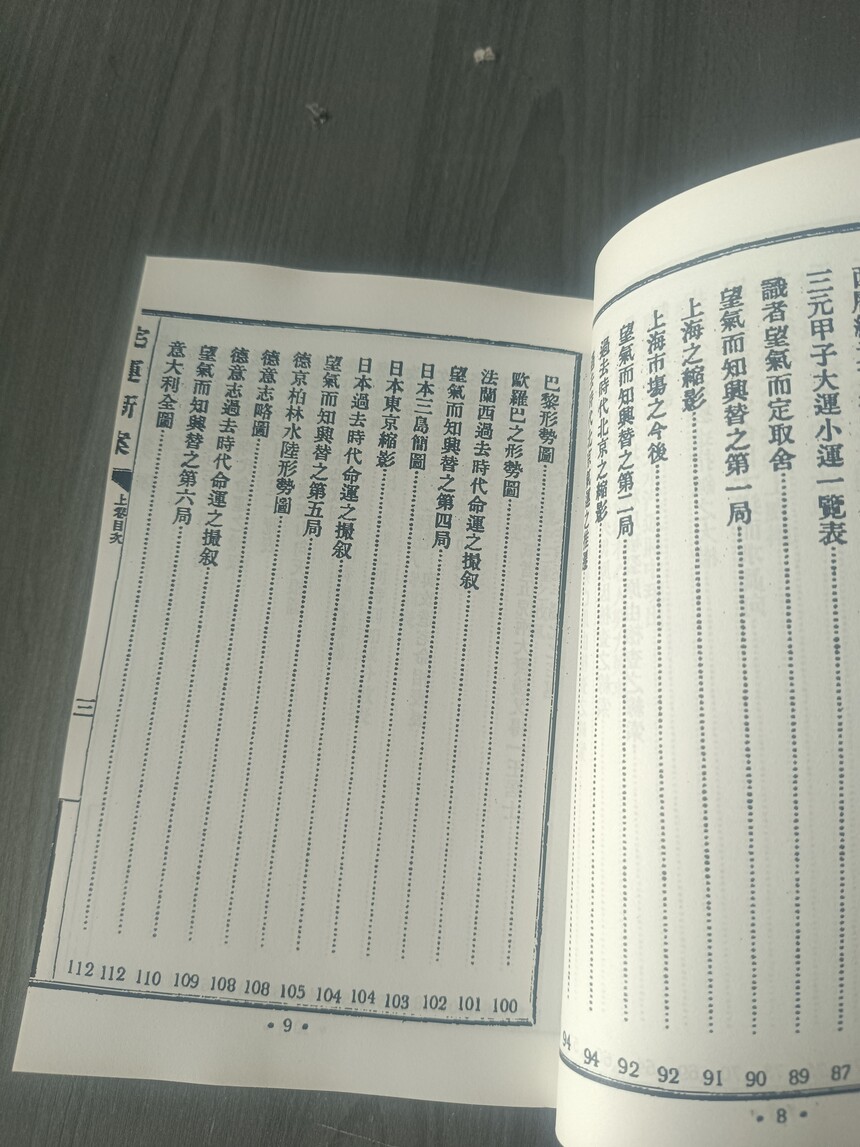 三元甲子大運小運一覽表……87
識者望氣而定取舍……89
望氣而知興替之第一局……90
上海之縮影……91
上海市塲之今後……92
望氣而知興替之第二局……92
過去時代北京之縮影……94
94
• 8 •
巴黎形勢圖……100
歐羅巴之形勢圖……101
法蘭西過去時代命運之撮叙……102
望氣而知興替之第四局……103
日本三島簡圖……104
日本東京縮影……104
日本過去時代命運之撮叙……105
望氣而知興替之第五局……108
德京柏林水陸形勢圖……108
德意志略圖……109
德意志過去時代命運之撮叙……110
望氣而知興替之第六局……112
意大利全圖……112
宅運新案 上卷目次 三
• 9 •